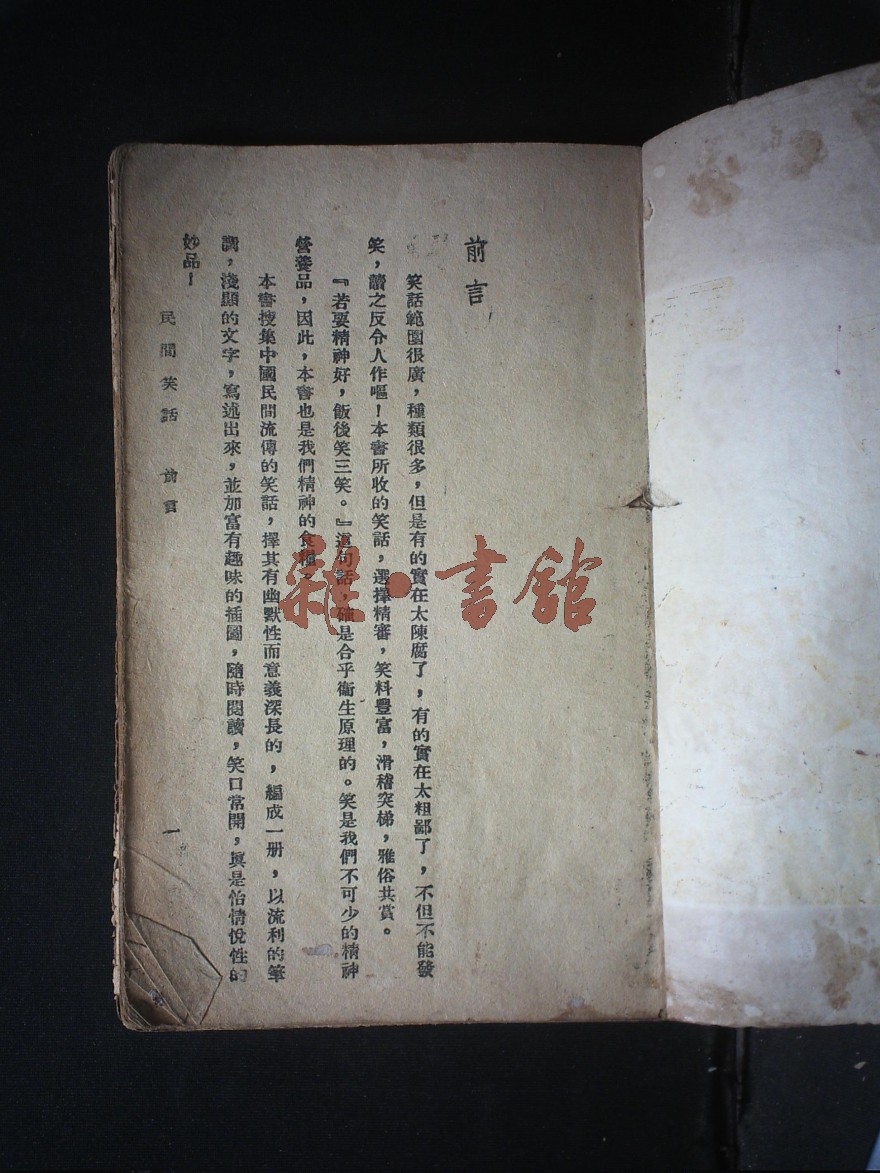 前言
笑話範圍很廣，種類很多，但是有的實在太陳腐了，有的實在太粗鄙了，不但不能發
笑，讀之反令人作嘔！本書所收的笑話，選擇精審，笑料豐富，滑稽突梯，雅俗共賞。
『若要精神好，飯後笑三笑。』這句話，確是合乎衞生原理的。笑是我們不可少的精神
營養品，因此，本書也是我們精神的食糧
本書搜集中國民間流傳的笑話，擇其有幽默性而意義深長的，編成一册，以流利的筆
調，淺顯的文字，寫述出來，並加富有趣味的插圖，隨時閱讀，笑口常開，眞是怡情悅性的
妙品！
民間笑話 前言
一
雜·書館